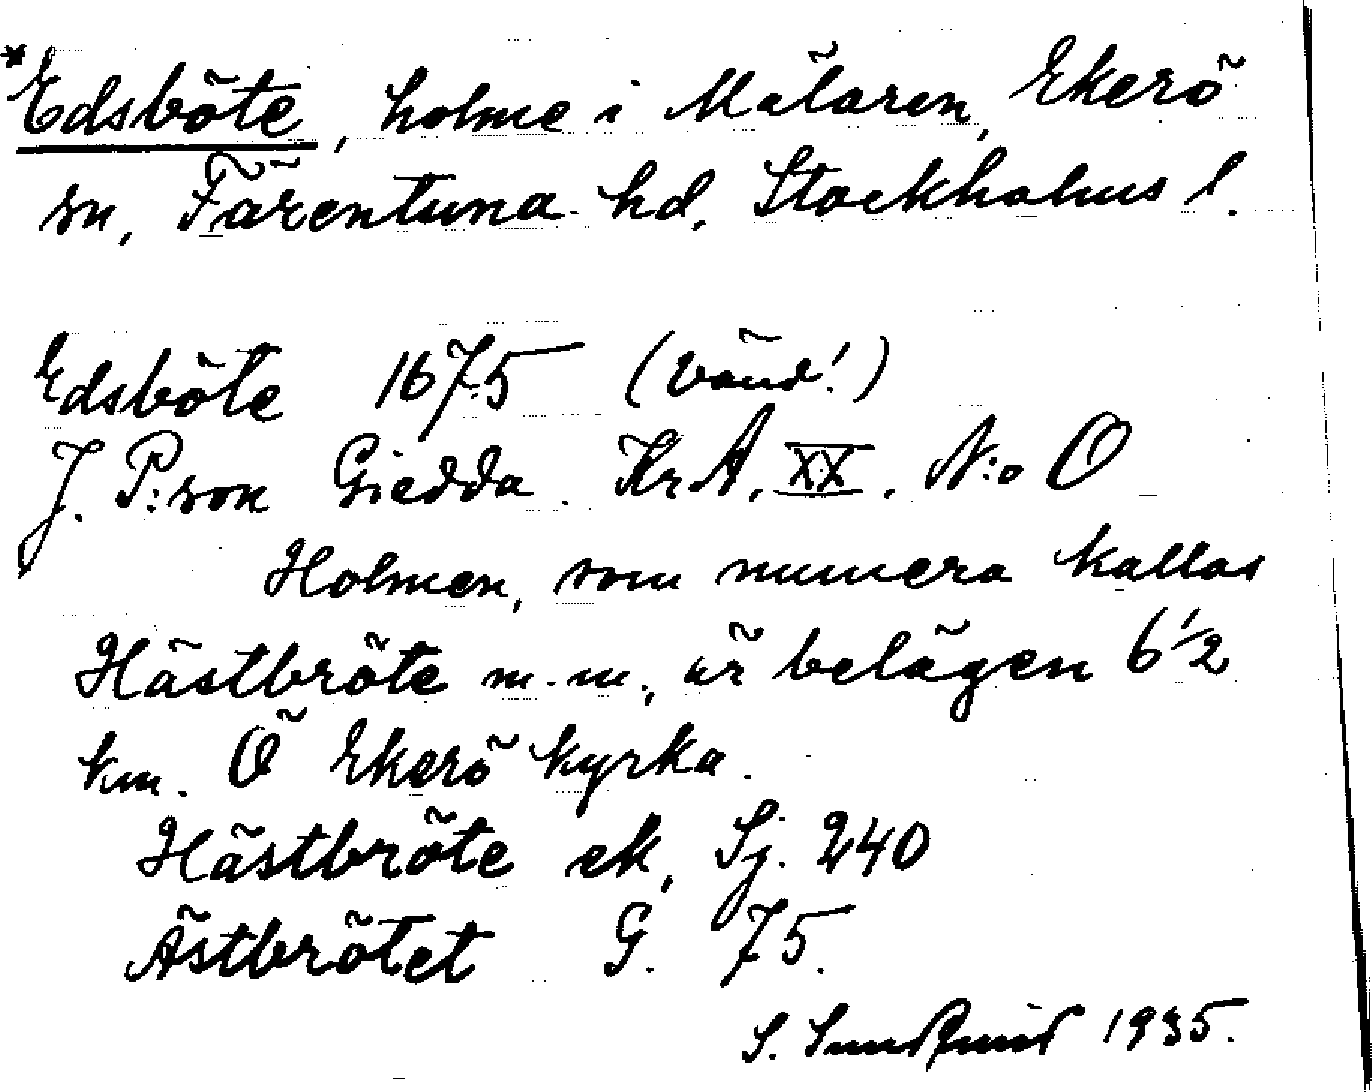 *Edsböte, holme i Mälaren, Ekerö
sn, Färentuna hd, Stockholms l.
Edsböte 1675 (vänd!)
J. P:son Giedda. KrA, XX, N:o O
Holmen, som numera kallas
Hästbröte m.m., är belägen 6 1/2
km. Ö Ekerö kyrka.
Hästbröte ek, Sj. 240
Ästbrötet G. 75.
S. 1935.